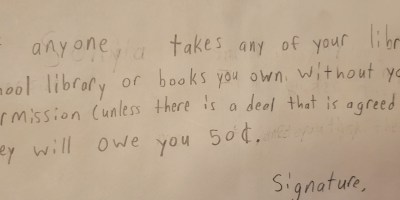 anyone takes any of your
library or books you own. Without
(unless there is a deal that is agreed
will owe you 50¢.
Signature,